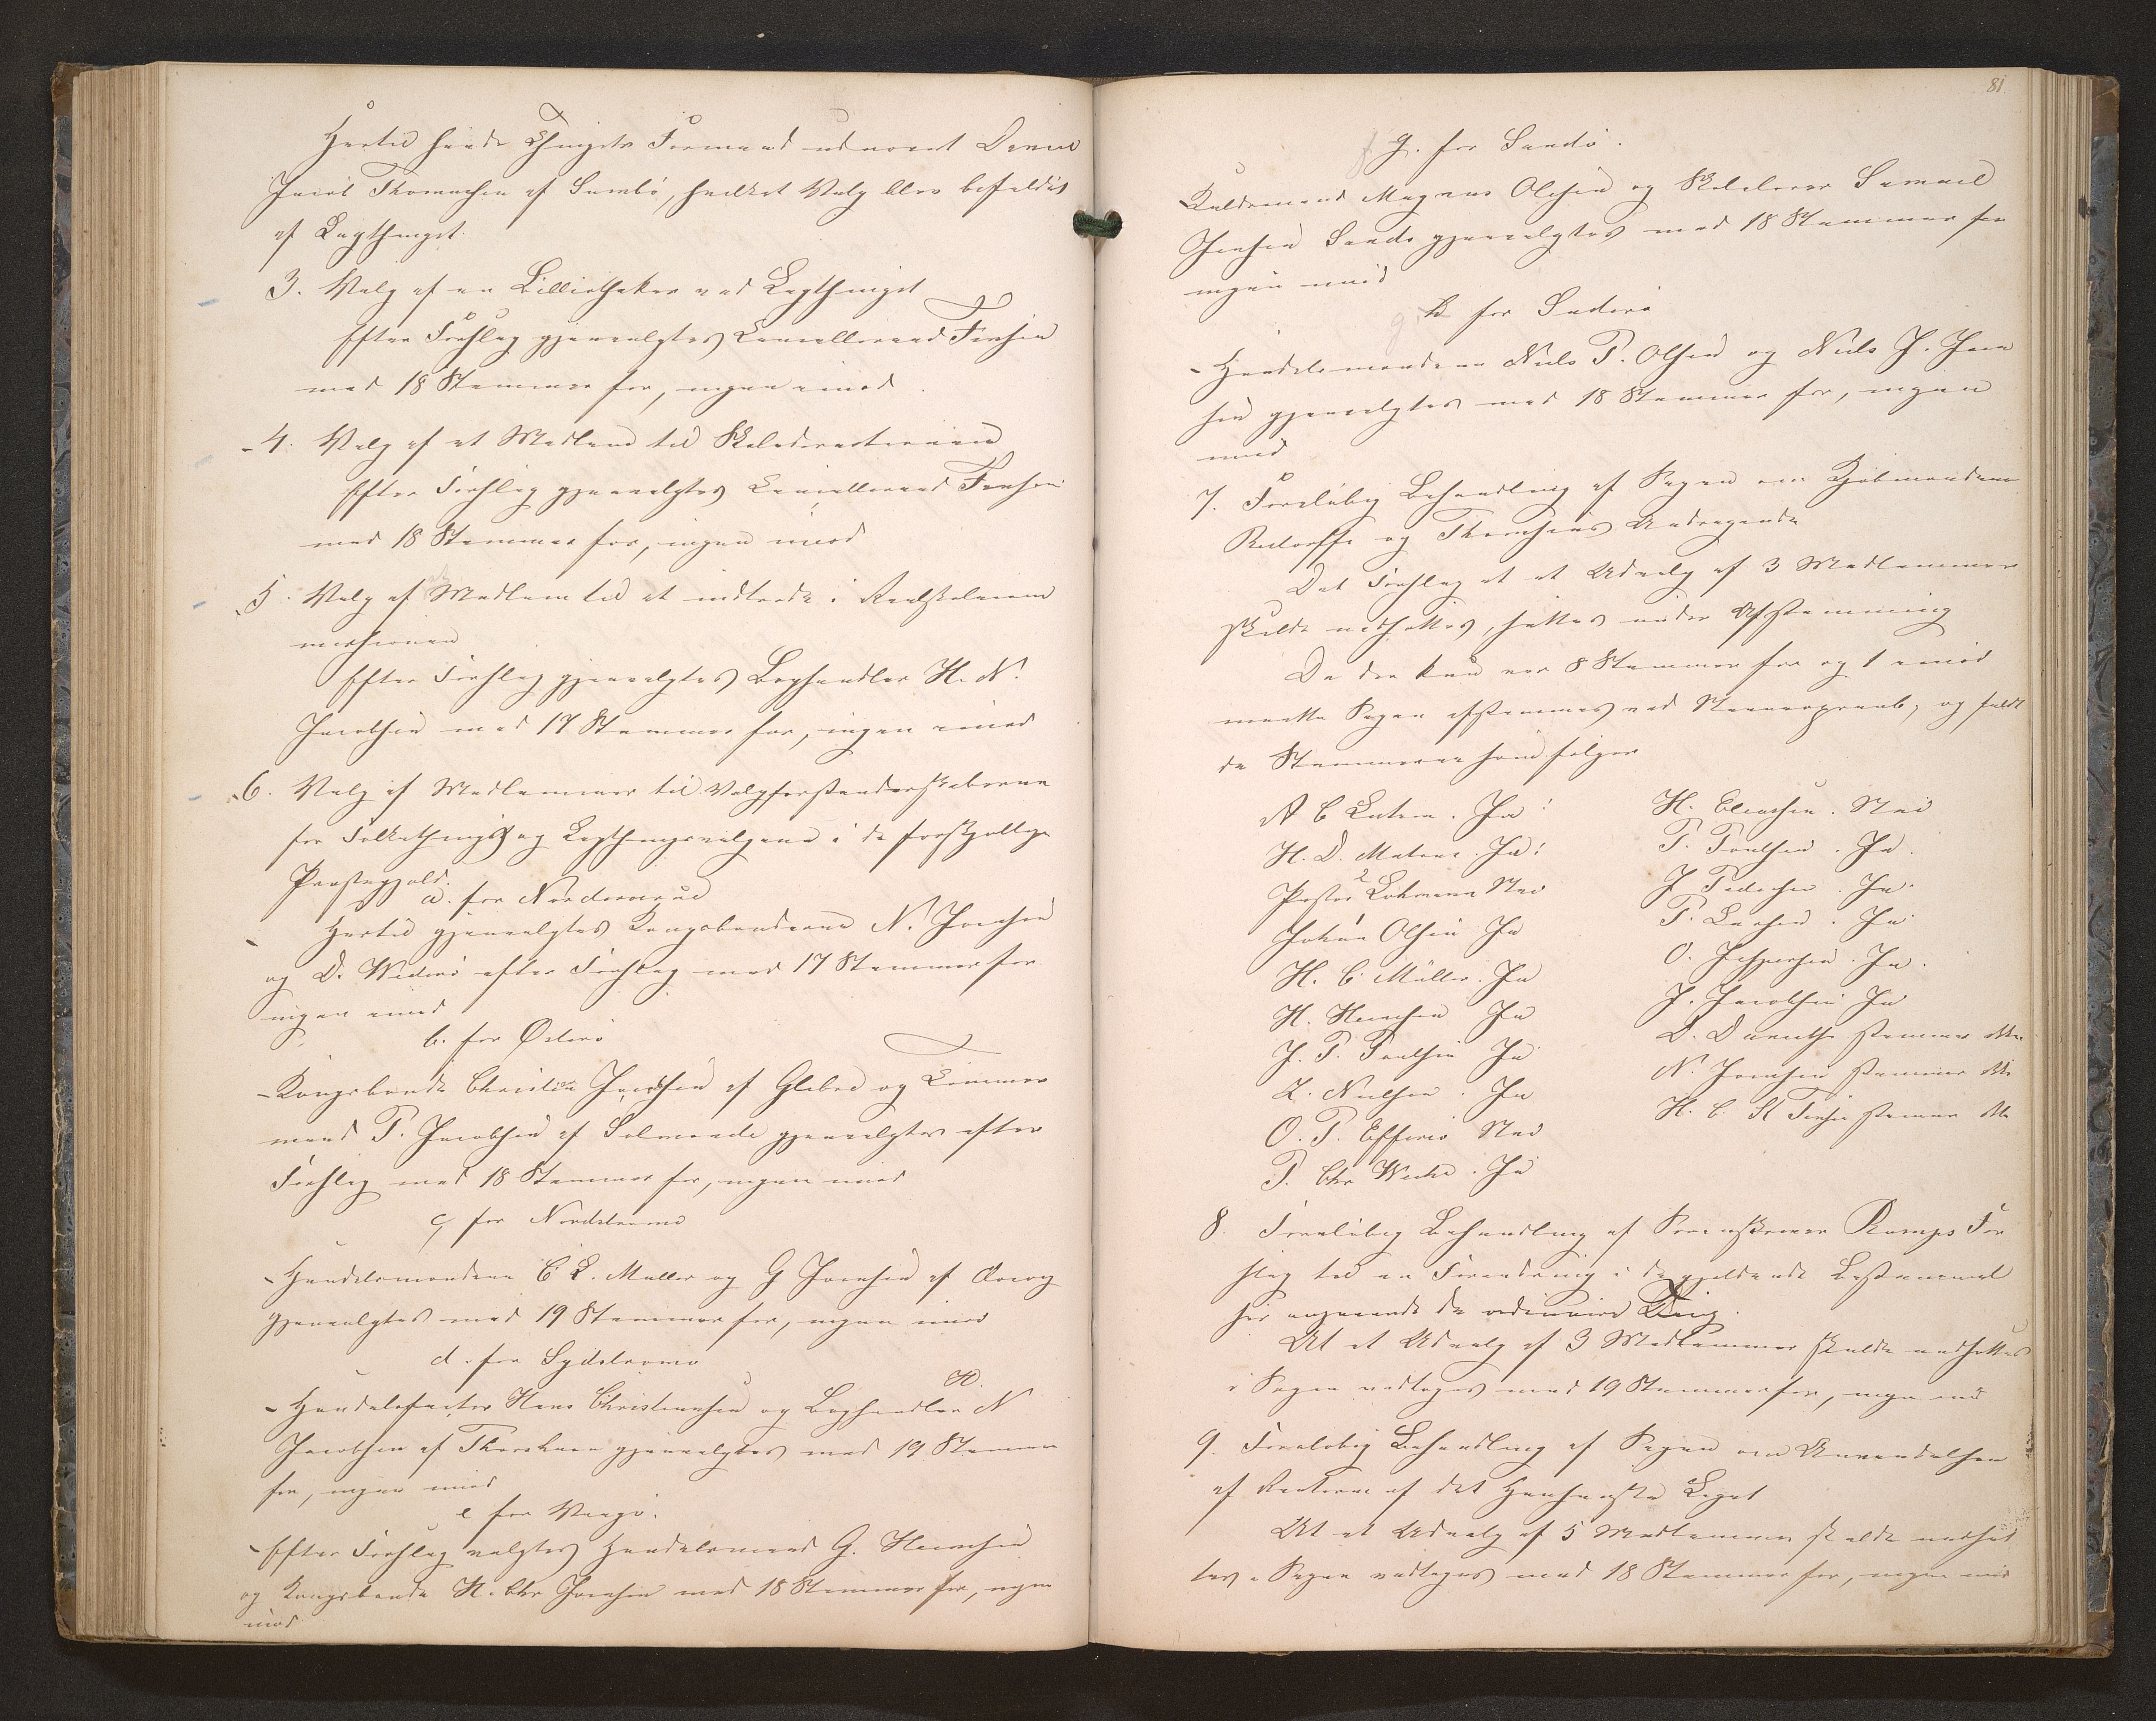 Hertil havde Thingets Formand udnævnt Daniel
Jacob Thomassen af Sumbø, hvilket Valg blev bifaldet
af Lagthinget.
3. Valg af en Bibliothekar ved Lagthinget
Efter Forslag gjenvalgtes Cancelliraad Finsen
med 18 Stemmer for, ingen imod.
4. Valg af et Medlem til Skoledirectionen
Efter Forslag gjenvalgtes Cancelliraad Finsen
med 18 Stemmer for, ingen imod
5. Valg af Medlem til at indtræde i Realskolecom
missionen
Efter Forslag gjenvalgtes Boghandler H. N.
Jacobsen med 17 Stemmer for, ingen imod
6. Valg af Medlemmer til Valgforstanderskaberne
for Folkethings og Lagthingsvalgene i de forskjellige
Præstegjæld.
a. for Norderøerne
Hertil gjenvalgtes Kongsbønderne N. Joensen
og D. Viderø efter Forslag med 17 Stemmer for
ingen imod
b. for Østerø
Kongsbonde Christian Jacobsen af Glibre og Tømmer
mand P. Jacobsen af Selvende gjenvalgtes efter
Forslag med 18 Stemmer for, ingen imod
c, for Nordstrømø
Handelsmændene C L. Müller og G Joensen af Qvivig
gjenvalgtes med 19 Stemmer for, ingen imod
d. for Sydstrømø
H.
Handelsfactor Hans Christiansen og Boghandler N
Jacobsen af Thorshavn gjenvalgtes med 19 Stemmer
for, ingen imod
e for Vaagø.
Efter Forslag valgtes Handelsmand G. Hansen
og Kongsbonde H. Chr Joensen med 18 Stemmer for, ingen
imod
81
g. for Sandø.
Magnus Olsen og Skolelærer Samuel
Jensen Sands gjenvalgtes med 18 Stemmer for
ingen imod
g h for Suderø
Handelsmændene Niels P. Olsen og Niels J. Joen
sen gjenvalgtes med 18 Stemmer for, ingen
imod
7. Foreløbig Behandling af Sagen om Kjøbmændene
Restorffs og Thomsens Andragende
Det Forslag at et Udvalg af 3 Medlemmer
skulde nedsættes, sattes under Afstemning
Da der kun var 8 Stemmer for og 1 imod
maatte Sagen afstemmes ved Navneopraab, og faldt
da Stemmerne som følger
A C Lutzen. Ja!
H. D. Matras. Ja!
Pastor Lohmann Nei
Johan Olsen Ja
H. C. Müller. Ja
H. Hansen Ja
J. P. Poulsen Ja
Z. Nielsen. Ja
O. P. Effersø Nei
P. Chr Weihe. Ja
H. Eliassen. Nei
P. Poulsen. Ja.
J Pedersen. Ja.
P. Larsen. Ja
O. Jespersen. Ja.
J. Jacobsen Ja
D. Danielsen stemmer ikke
N. Joensen stemmer ikke
H. C. St Finsen stemmer ikke
8. Foreløbig Behandling af Sorenskriver Ramps For
slag til en Forandring i de gjældende Bestemmel
ser angaaende de ordinaire Thing.
At et Udvalg af 3 Medlemmer skulde nedsættes
i Sagen vedtoges med 19 Stemmer for, ingen imod
9. Foreløbig Behandling af Sagen om Anvendelsen
af Renterne af det Legat
At et Udvalg af 5 Medlemmer skulde nedsæt
tes i Sagen vedtoges med 18 Stemmer for, ingen imod